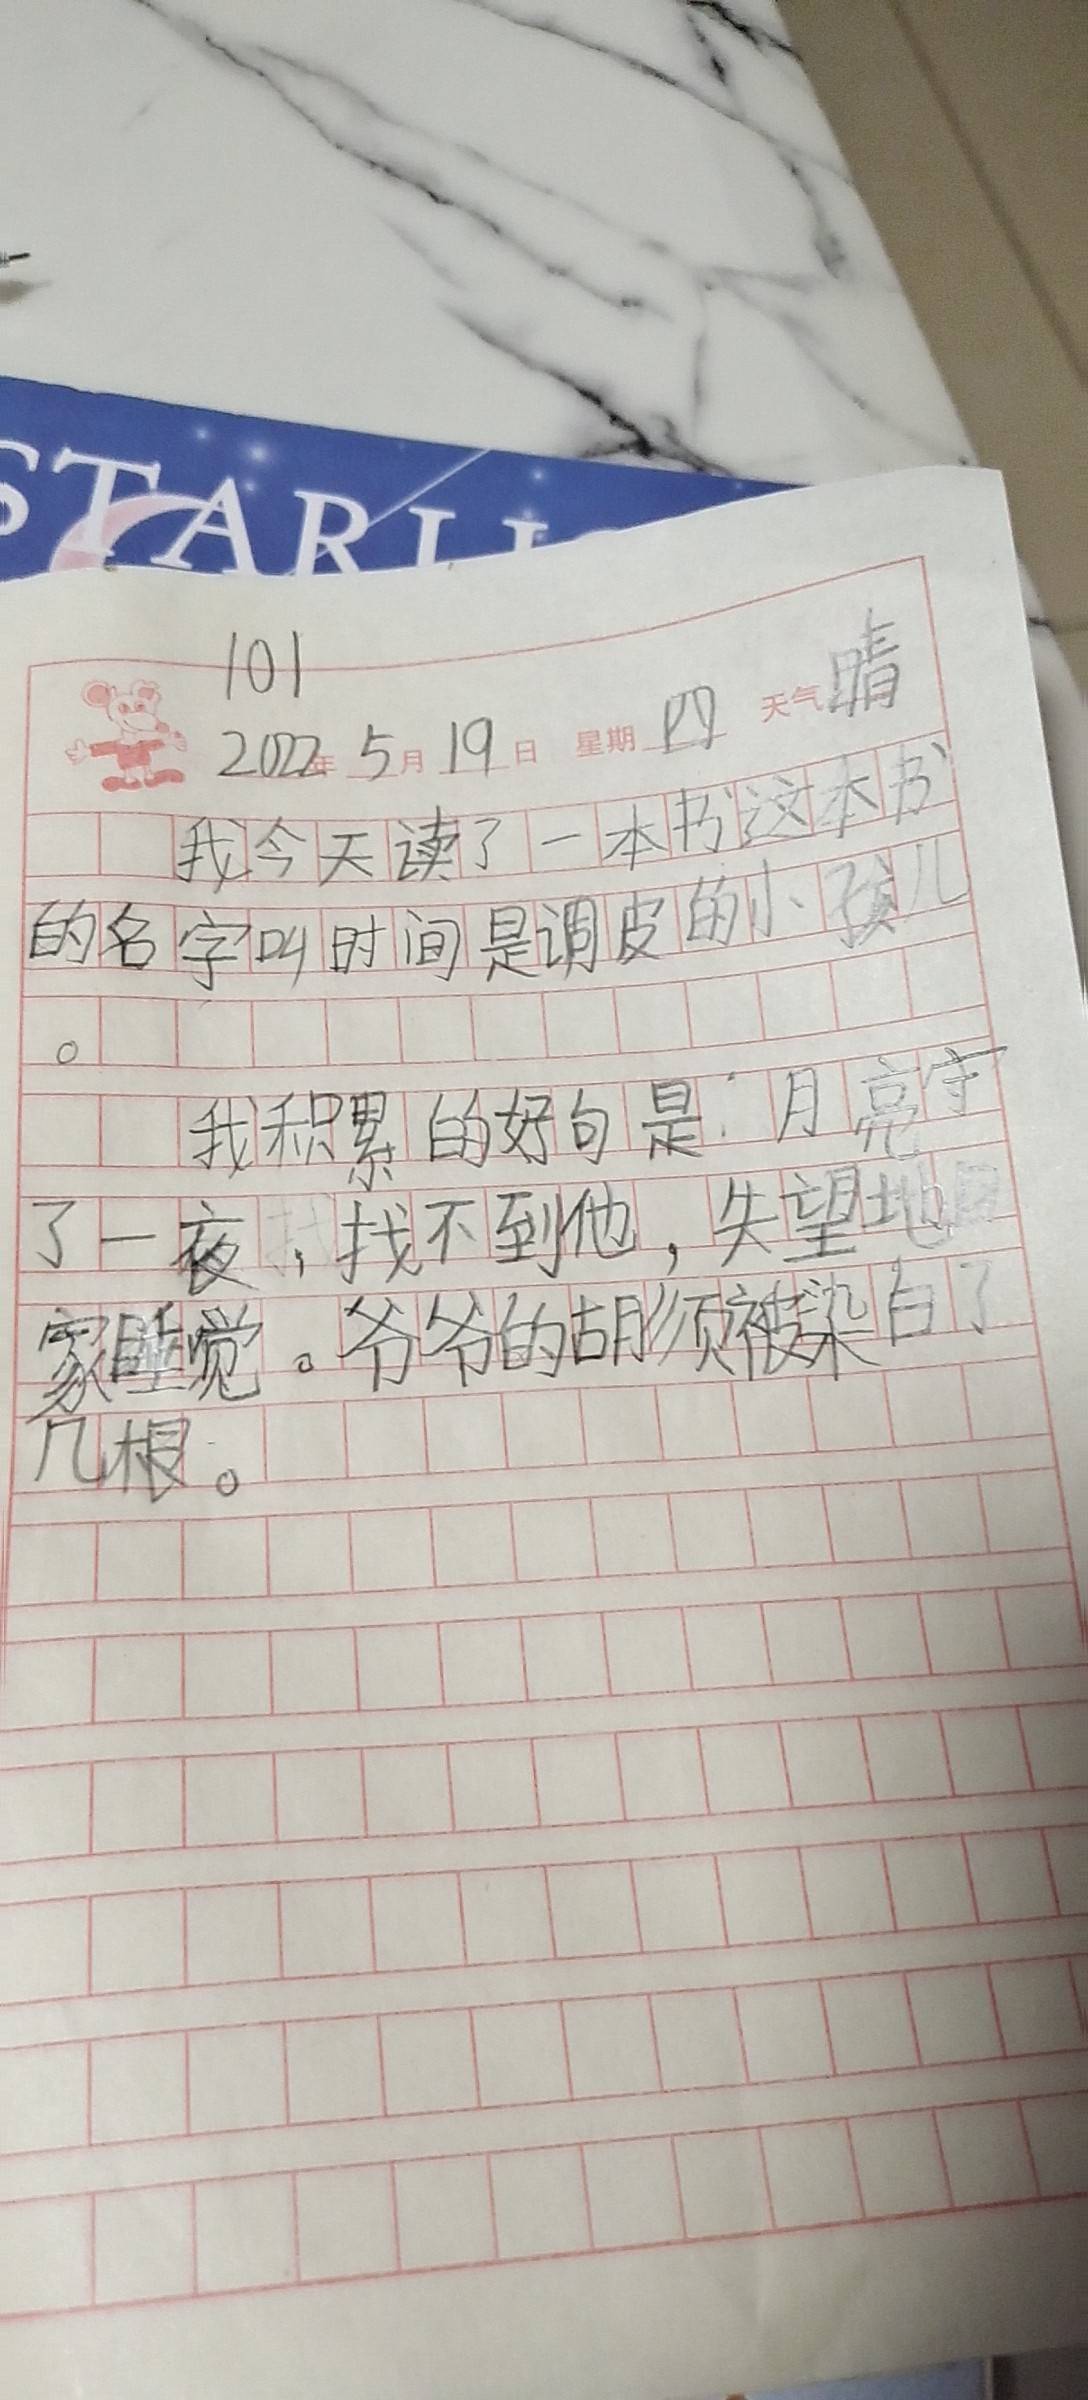 STARLI
101
2022年5月19日 星期四 天气晴
我今天读了一本书这本书
的名字叫时间是调皮的小孩儿
。
我积累的好句是:月亮守
了一夜,找不到他,失望地回
家睡觉。爷爷的胡须被染白了
几根。